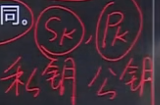 同。
Sk, Pk
私钥 公钥